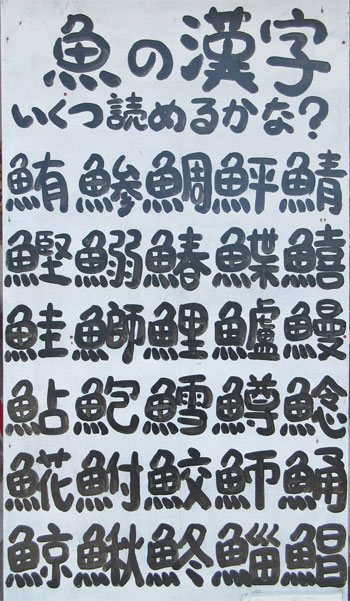 魚の漢字
いくつ読めるかな?
鮪鯵鯛鮃鯖
鰹鰯鰆鰈鱚
鮭鰤鯉鱸鰻
鮎鮑鱈鱒鯰
𩸽鮒鮫魳鯒
鯨鰍鮗鯔鯧